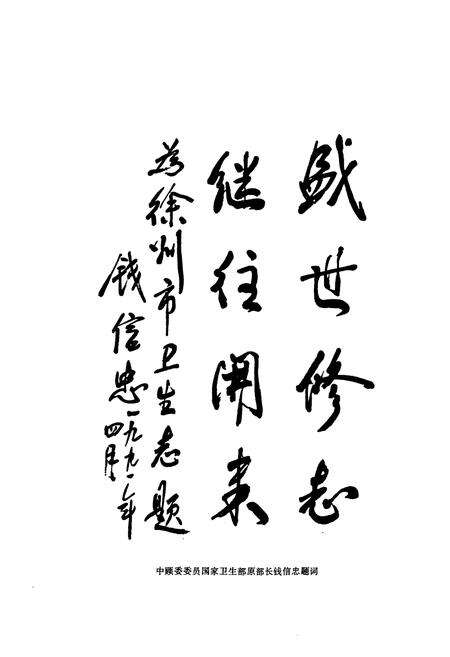 盛世修志
继往開来
为徐州市卫生志题
钱信忠一九九一年
四月
中顾委委员国家卫生部原部长钱信忠题词